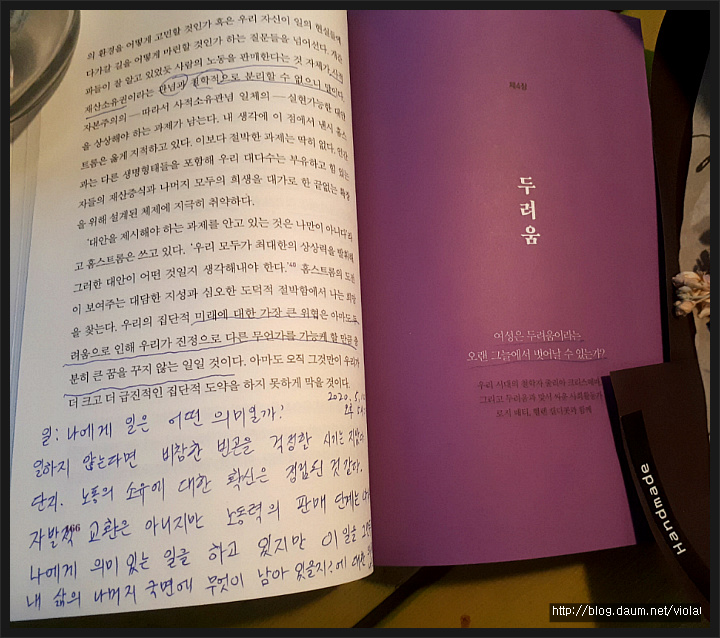 의 환경을 어떻게 고민할 것인가 혹은 우리 자신이 일의 현실
다가갈 길을 어떻게 마련할 것인가 하는 질문들을 넘어선다.
과들이 잘 알고 있었듯 사람의 노동을 판매한다는 것 자체가
재산소유권이라는 관념과 철학적으로 분리할 수 없으니 말이다.
자본주의의 — 따라서 사적소유관념 일체의 — 실현가능한 대안
을 상상해야 하는 과제가 남는다. 내 생각에 이 점에서 낸시 홈스
트롬은 옳게 지적하고 있다. 이보다 절박한 과제는 딱히 없다. 인간
과는 다른 생명형태들을 포함해 우리 대다수는 부유하고 힘 있는
자들의 재산증식과 나머지 모두의 희생을 대가로 한 끝없는 확장
을 위해 설계된 체제에 지극히 취약하다.
'대안을 제시해야 하는 과제를 안고 있는 것은 나만이 아니다'라
고 홈스트롬은 쓰고 있다. '우리 모두가 최대한의 상상력을 발휘해
그러한 대안이 어떤 것일지 생각해내야 한다.'⁴⁸ 홈스트롬의 도전
이 보여주는 대담한 지성과 심오한 도덕적 절박함에서 나는 희망
을 찾는다. 우리의 집단적 미래에 대한 가장 큰 위협은 아마도 두
려움으로 인해 우리가 진정으로 다른 무언가를 가능케 할 만큼 충
분히 큰 꿈을 꾸지 않는 일일 것이다. 아마도 오직 그것만이 우리가
더 크고 더 급진적인 집단적 도약을 하지 못하게 막을 것이다.
2020. 5.
일: 나에게 일은 어떤 의미일까?
일하지 않는다면 비참한 빈곤을 걱정한 시기는 지났다
단지. 노동의 소유에 대한 확신은 점검된 것 같다.
자발적 교환은 아니지만 노동력의 판매 단계는
166
나에게 의미 있는 일을 하고 있지만 이 일을
내 삶의 나머지 국면에 무엇이 남아 있을지?에
제4장
두려움
여성은 두려움이라는
오랜 그늘에서 벗어날 수 있는가?
우리 시대의 철학자 줄리아 크리스테바
그리고 두려움과 맞서 싸운 사회활동가
로지 배티, 헬렌 콜디콧과 함께
Handmade
http://blog.daum.net/viola